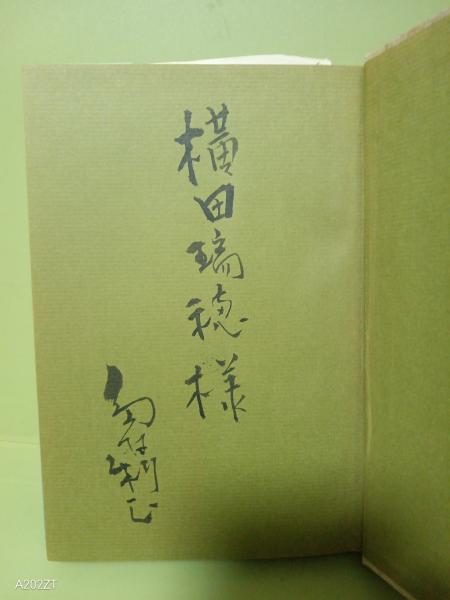 横田瑞穂様
A202ZT